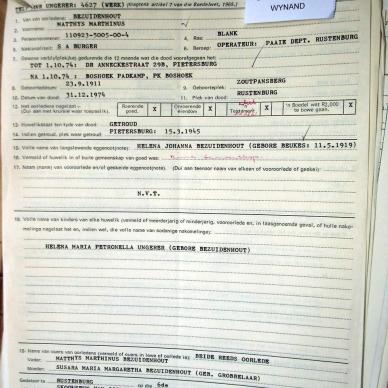 TELEFOON UNGERER: 4627 (WERK) (Kragtens artikel 7 van die Boedelwet, 1965.)
WYNAND
1. Van van oorledene: BEZUIDENHOUT
2. Voorname: MATTHYS MARTHINUS
3. Persoonsnommer: 110923-5005-00-4
4. Ras: BLANK
5. Nasionaliteit: S A BURGER
6. Beroep: OPERATEUR: PAAIE DEPT. RUSTENBURG
TOT 1.10.74: DR ANNECKESTRAAT 29B, PIETERSBURG
NA 1.10.74 : BOSHOEK PADKAMP, PK BOSHOEK
8. Geboortedatum: 23.9.1911
9. Geboorteplek: ZOUTPANSBERG
10. Datum van dood: 31.12.1974
11. Plek van dood: RUSTENBURG
12. Het oorledene nagelaat—
(Dui aan met kruisie waar toepaslik).
Roerende goed. X
Onroerende eiendom X
X
'n Boedel wat R2,000 te bowe gaan. X
13. Huwelikstaat ten tyde van dood: GETROUD
14. Indien getroud, plek waar getroud: PIETERSBURG: 15.3.1945
15. Volle name van langslewende eggenoot(note): HELENA JOHANNA BEZUIDENHOUT (GEBORE BEUKES: 11.5.1919)
16. Vermeld of huwelik in of buite gemeenskap van goed was:
17. Naam (name) van vooroorlede en/of geskeide eggenoot(note). (Dui aan teenoor naam van elkeen of vooroorlede of geskei):
N.V.T.
18. Volle name van kinders van elke huwelik (vermeld of meerderjarig of minderjarig,
HELENA MARIA PETRONELLA UNGERER (GEBORE BEZUIDENHOUT)
19. Name van ouers van oorledene (vermeld of ouers in lewe of oorlede is): BEIDE REEDS OORLEDE
Vader: MATTHYS MARTHINUS BEZUIDENHOUT
Moeder: SUSARA MARIA MARGARETHA BEZUIDENHOUT (GEB. GROBBELAAR)
Gedateer te RUSTENBURG op die 6de